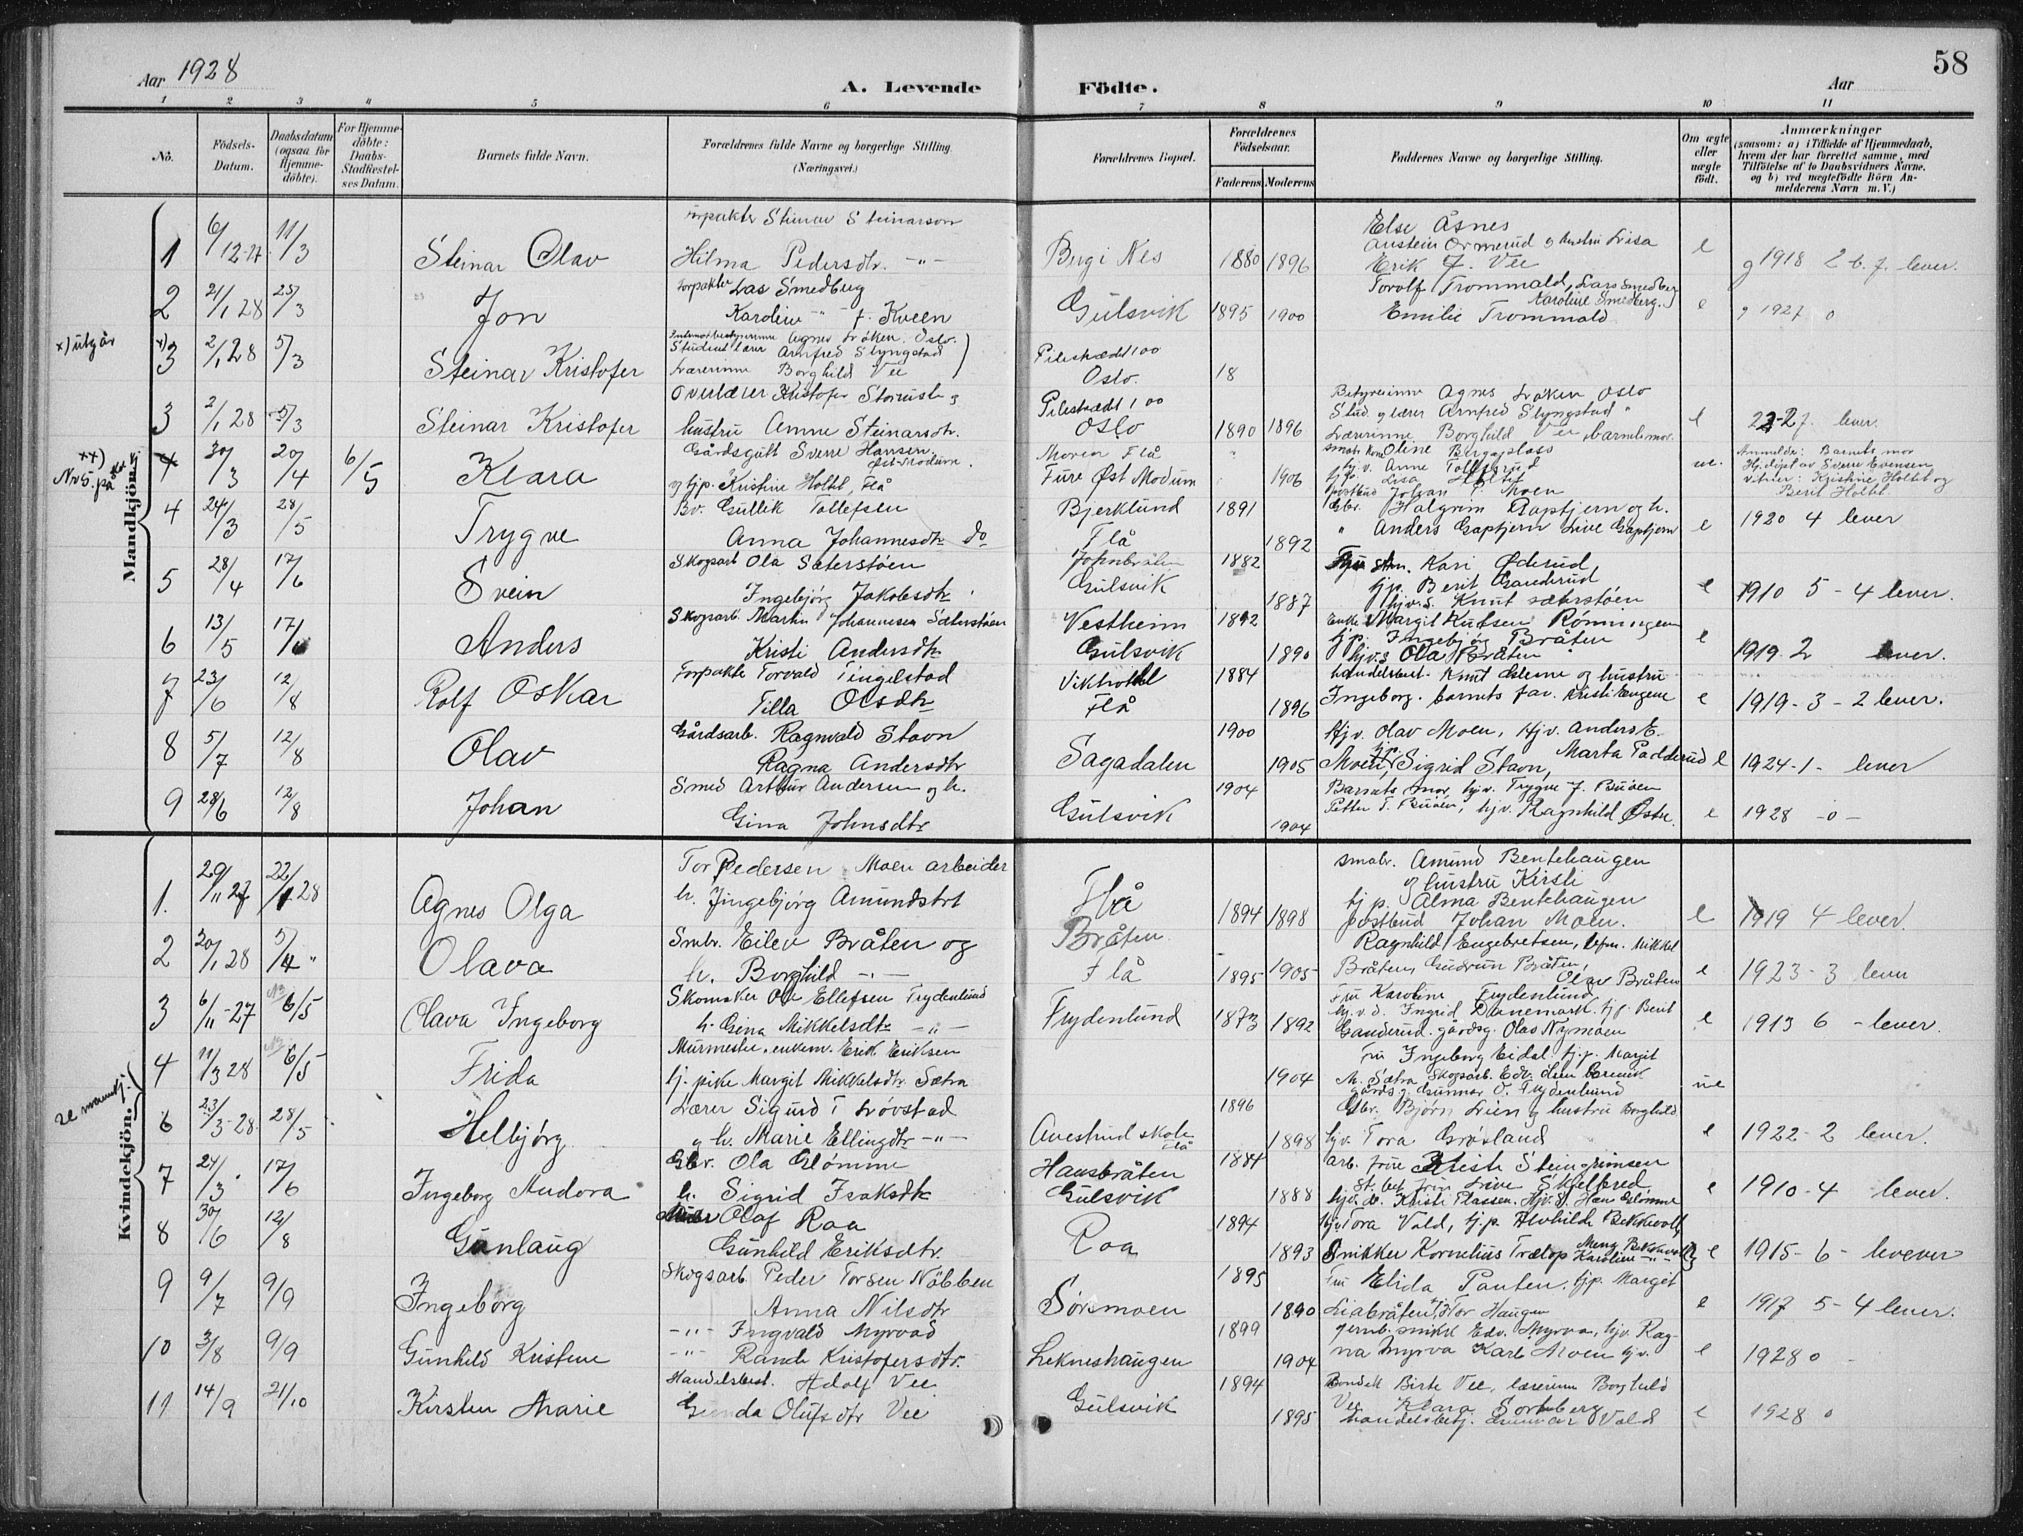 Aar 1928
A. Levende Födte.
Aar
58
1 2 3 4 5 6 7 8 9 10 11
No.
Födsels-Datum.
Daabsdatum (ogsaa for Hjemme-döbte).
For Hjemme-döbte: Daabs-Stadfæstel-ses Datum.
Barnets fulde Navn.
Forældrenes fulde Navne og borgerlige Stilling (Næringsvei.)
Forældrenes Bopæl.
Forældrenes Födselsaar.
Faderens Moderens
Faddernes Navne og borgerlige Stilling.
Om ægte eller uægte födt.
Anmærkninger
(saasom: a) i Tilfælde af Hjemmedaab, hvem der har forrettet samme, med Tilföielse af to Daabsvidners Navne. og b) ved uægtefödte Börn An-melderens Navn m. V.)
Mandkjön.
1 6/12-27 11/3 Steinar Olav
Forpakter Steinar Steinarson
Hilma Pedersdtr. -"-
Bergi Nes 1880 1896
Else Åsnes
Anstein Ormerud og hustru Lisa
Erik J. Vee
e g 1918 2 b. f. lever.
2 21/1 28 25/3 Jon
Forpakter Las Smedberg
Karoline " f. Kveen
Gulsvik 1895 1900
Torolf Trommald, Lars Smedberg
Karoline Smedberg.
Emilie Trommald
e g 1927 0
x) utgår
x) 3 2/1 28 5/3 Steinar Kristofer
Agnes Løken. Oslo.
Student lærer Arnfred Slyngstad
Lærerinne Borghild Vee
Pilestrædt 100
Oslo. 18
3 2/1 28 5/3 Steinar Kristofer
Overlærer Kristofer og
hustru Anne Steinarsdtr.
Pilestrædt 100
Oslo 1890 1896
Bestyrerinne Agnes Løken Oslo
Stud. og lærer Arnfred Slyngstad "
Lærerinne Borghild Vee, barnets mor.
e 22-27. lever.
xx)
Nr 5. på
4 30/3 20/4 6/5 Klara
Gårdsgutt Sverre Hansen
Øst-Modum.
og hjp. Kristine Holtet, Flå
Moren Flå
Fure Øst Modum 1906
småbr. kone Oline Bergaplass
hj.v. Anne Tollefsrud
hj.p. Lisa Holtet
postbud Johan P. Moen
ue. Anmelder: Barnets mor
Hj.døpt av Sverre Evensen
Vitner: Kristine Holtet og
Berit Holtet.
4 24/3 28/5 Trygve
Bv. Gullik Tollefsen
Anna Johannesdtr do
Bjerklund
Flå 1891 1892
Gbr. Halgrim Gaptjern og h.
" Anders Gaptjern Live Gaptjern
e 1920 4 lever
5 28/4 17/6 Svein
Skogsarb Ola Sæterstøen
Ingebjørg Jakobsdtr.
Gulsvik 1882 1887
Kari Øderud,
hjp. Berit Ganderud
hjv.s. Knut Sæterstøen
e 1910 5 - 4 lever.
6 13/5 17/6 Anders
Skogsarb. Martin Johannesen Sæterstøen
Kristi Andersdtr
Vestheim
Gulsvik 1892 1890
Enke Margit Knutsen Rønningen
hjp. Ingebjørg Bråten
hjv.s Ola Bråten
e 1919. 2 lever.
7 23/6 12/8 Rolf Oskar
Forpakter Torvald Tingelstad
Tilla Olsdtr
Flå 1884 1896
handelsbest. Knut og hustru
Ingeborg. barnets far. Kristi Eugene
e 1919 - 3 - 2 lever.
8 5/7 12/8 Olav
Gårdsarb. Ragnvald Stavn
Ragna Andersdtr
Sagadalen 1900 1905
Hjv. Olav Moen, Hjv. Anders E.
Moen, hjp. Sigrid Stavn, Marta Padderud
e 1924 - 1 - lever
9 28/6 12/8 Johan
Smed Arthur Andersen og h.
Gina Johnsdtr
Gulsvik 1904 1904
Barnets mor, hjv. Trygve J. Buøen
Petter T. Buøen, hjv. Ragnhild Østre.
e 1928 -0-
Kvindekjön.
1. 29/11 27 22/1 28 Agnes Olga
Tor Pedersen Moen arbeider
h. Ingebjørg Amundsdtr
Flå 1894 1898
småbr. Amund Bentehaugen
og hustru Kirsti
hj p. Alma Bentehaugen
postbud Johan Moen.
e 1919 4 lever.
2 30/1 28 5/4 " Olava
Smbr. Eilev Bråten og
h. Borghild -"-
Bråten
Flå 1895 1905
Ragnhild Engebretsen, Mikkel
Bråten, Gudrun Bråten,
Olav Bråten
e 1923 - 3 lever
3 6/11-27 6/5 Olava Ingeborg
Skomaker Ole Ellefsen Frydenlund
h. Gina Mikkelsdtr -"-
Frydenlund 1873 1892
Fru Karoline Frydenlund
hj.v.d. Ingrid Danemark. hjp. Berit
Ganderud. gårdsg. Olav Nymoen
e 1913 6 - lever.
4 11/3 28 6/5 Frida
Murmester, enkem. Erik Eriksen
hj. pike Margit Mikkelsdtr. Sætra
1904
Fru Ingeborg Eidal. hj.p. Margit
M. Sætra Skogsarb. Edv.
gårdsg. Gunnar O. Frydenlund
ue
se mannkj.
6 23/3-28. 28/5 Helbjørg
Lærer Sigurd T Løvstad
og h. Marie Ellingdtr -"-
Avestrud skole
Flå 1896 1898
Gbr. Bjørn Lien og hustru Borghild
hjv. Tora Grøsland
e 1922 - 2 lever.
7 24/3 17/6 Ingeborg Andora
Gbr. Ola Glømme
h. Sigrid Isaksdtr
Hansbråten
Gulsvik 1884 1888
arb. frue Kristi Steingrimsen
st. bet. frue Live Skjelbred
hjv.d. Kristi Klassen, Hjv.s. Hans Glømme
e 1910 - 4 lever.
8 30/6 12/8 Gunlaug
Olaf Roa
Gunhild Eriksdtr.
Roa 1894 1893
hjv Tora Vold, hj.p. Alvhilde Bekkevoll
Snikker Kornelius Trætop
Karoline -"-
e 1915 - 6 - levever
9 9/7 9/9 Ingeborg
Skogsarb. Peder Torsen Nøbben
Anna Nilsdtr
Sørsmoen 1895 1890
Fru Elida Panten. hjp. Margit
Liabråten, Tor Haugen
e 1917 5 - 4 lever.
10 3/8 9/9 Gunhild Kristine
-"- Ingvald Myrvad
-"- Randi Kristofersdtr.
Lekneshaugen 1899 1904
jernb. snikk Edv. Myrva, hjv. Rag-
na Myrva Karl Moen hjv.
e 1928 0 -
11 14/9 21/10 Kirsten Marie
Handelsbest. Adolf Vee
Gunda Olufsdtr Vee
Gulsvik 1894 1895
Bondek Birte Vee, lærerinne Borghild
Vee Klara Sørbberg
handelsbetj. Gunnar Vold
e 1928 0